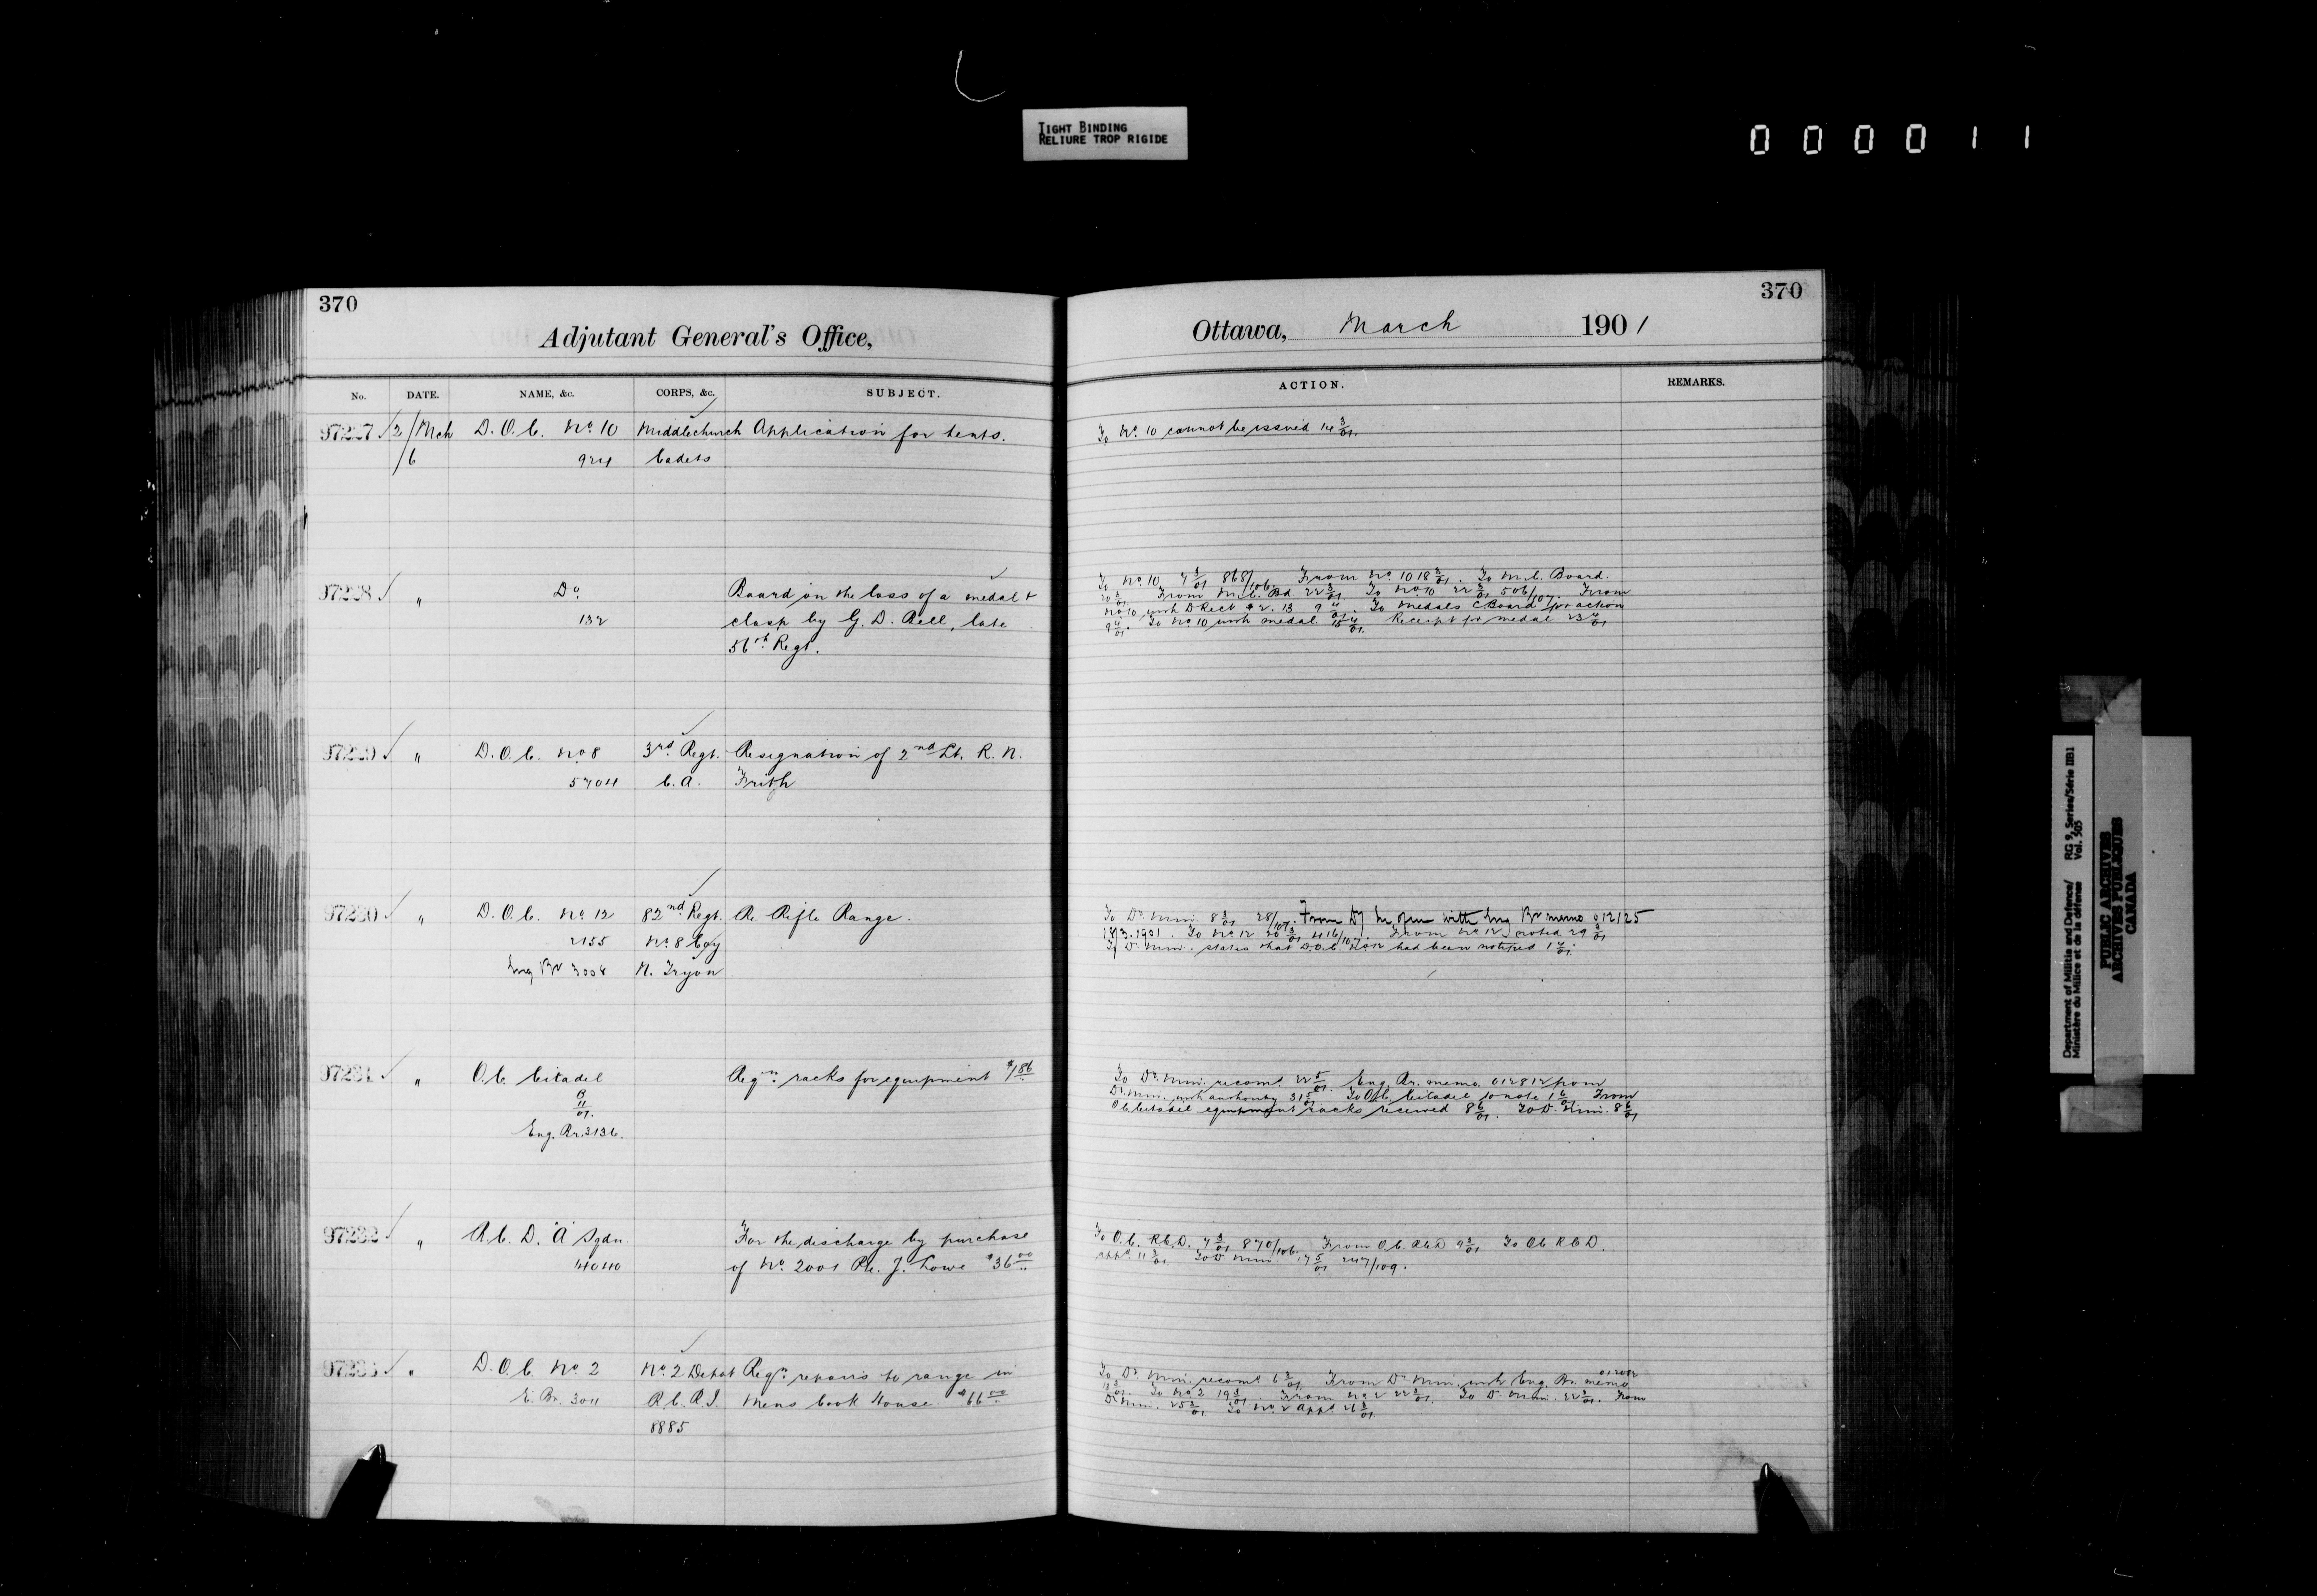 TIGHT BINDING
RELIURE TROP RIGIDE
000011
370
Adjutant General's Office,
No. DATE. NAME, &c. CORPS, &c. SUBJECT.
97227 2/Mch D.O.C. No. 10 Middlechurch Application for tents.
/6 924 Cadets
97228 " Do. Board on the loss of a medal &
132 clasp by G. D. Bell, late
56th Regt.
97229 " D.O.C. No. 8 3rd Regt. Resignation of 2nd Lt. R. N.
5704 C.A. Frith
97230 " D.O.C. No. 12 82nd Regt. Re Rifle Range.
2155 No. 8 Coy
Eng Br 3008 N. Tryon
97231 " O.C. Citadel Reqn. racks for equipment $186
B
11
01.
Eng. Br. 3136.
97232 " R.C.D. "A" Sqdn. For the discharge by purchase
4040 of No. 2001 Pte. J. Lowe $36.00
97233 " D.O.C. No. 2 No. 2 Depot Reqn. repairs to range in
E. Br. 3011 R.C.R.I. Mens Cook House. $66.00
8885
370
Ottawa, March 1901
ACTION. REMARKS.
To No. 10 cannot be issued 14 3/01.
To No. 10 7 3/01 868/106. From No. 10 18 3/01. To M.C. Board.
20 3/01. From M.C. Bd. 22 3/01. To No. 10 22 3/01 506/107. From
No. 10 with D Rect 2. 13 9 4/01. To Medals C Board for action
9 4/01. To No. 10 with medal 15 4/01. Receipt for medal 23 4/01
To D. Min. 8 3/01 28/107. From D/ Min with Eng Br memo 012125
18/3.1901. To No. 12 20 3/01 416/107. From No. 12 noted 29 3/01
D. Min. states that D.O.C. No. 12 had been notified 1 4/01.
To D. Min. recomd. 22 5/01. Eng. Br. memo. 012812 from
D. Min. with authority 31 5/01. To O.C. Citadel to note 1 6/01 From
O.C. Citadel equipment racks received 8 6/01. To D. Min. 8 6/01
To O.C. R.C.D. 7 3/01 870/106. From O.C. R.C.D 9 3/01 To OC R.C.D.
appd. 11 3/01. To D Min 17 5/01 247/109.
To D. Min. recomd. 6 3/01 From D. Min. with Eng. Br. memo
13 3/01. To No. 2 19 3/01. From No. 2 22 3/01. To D. Min. 22 3/01. From
D. Min. 25 3/01 To No. 2 appd. 26 3/01
Department of Militia and Defence/ RG 9, Series/Série IIB1
Ministère du Milice et de la défense Vol. 505
PUBLIC ARCHIVES
ARCHIVES PUBLIQUES
CANADA